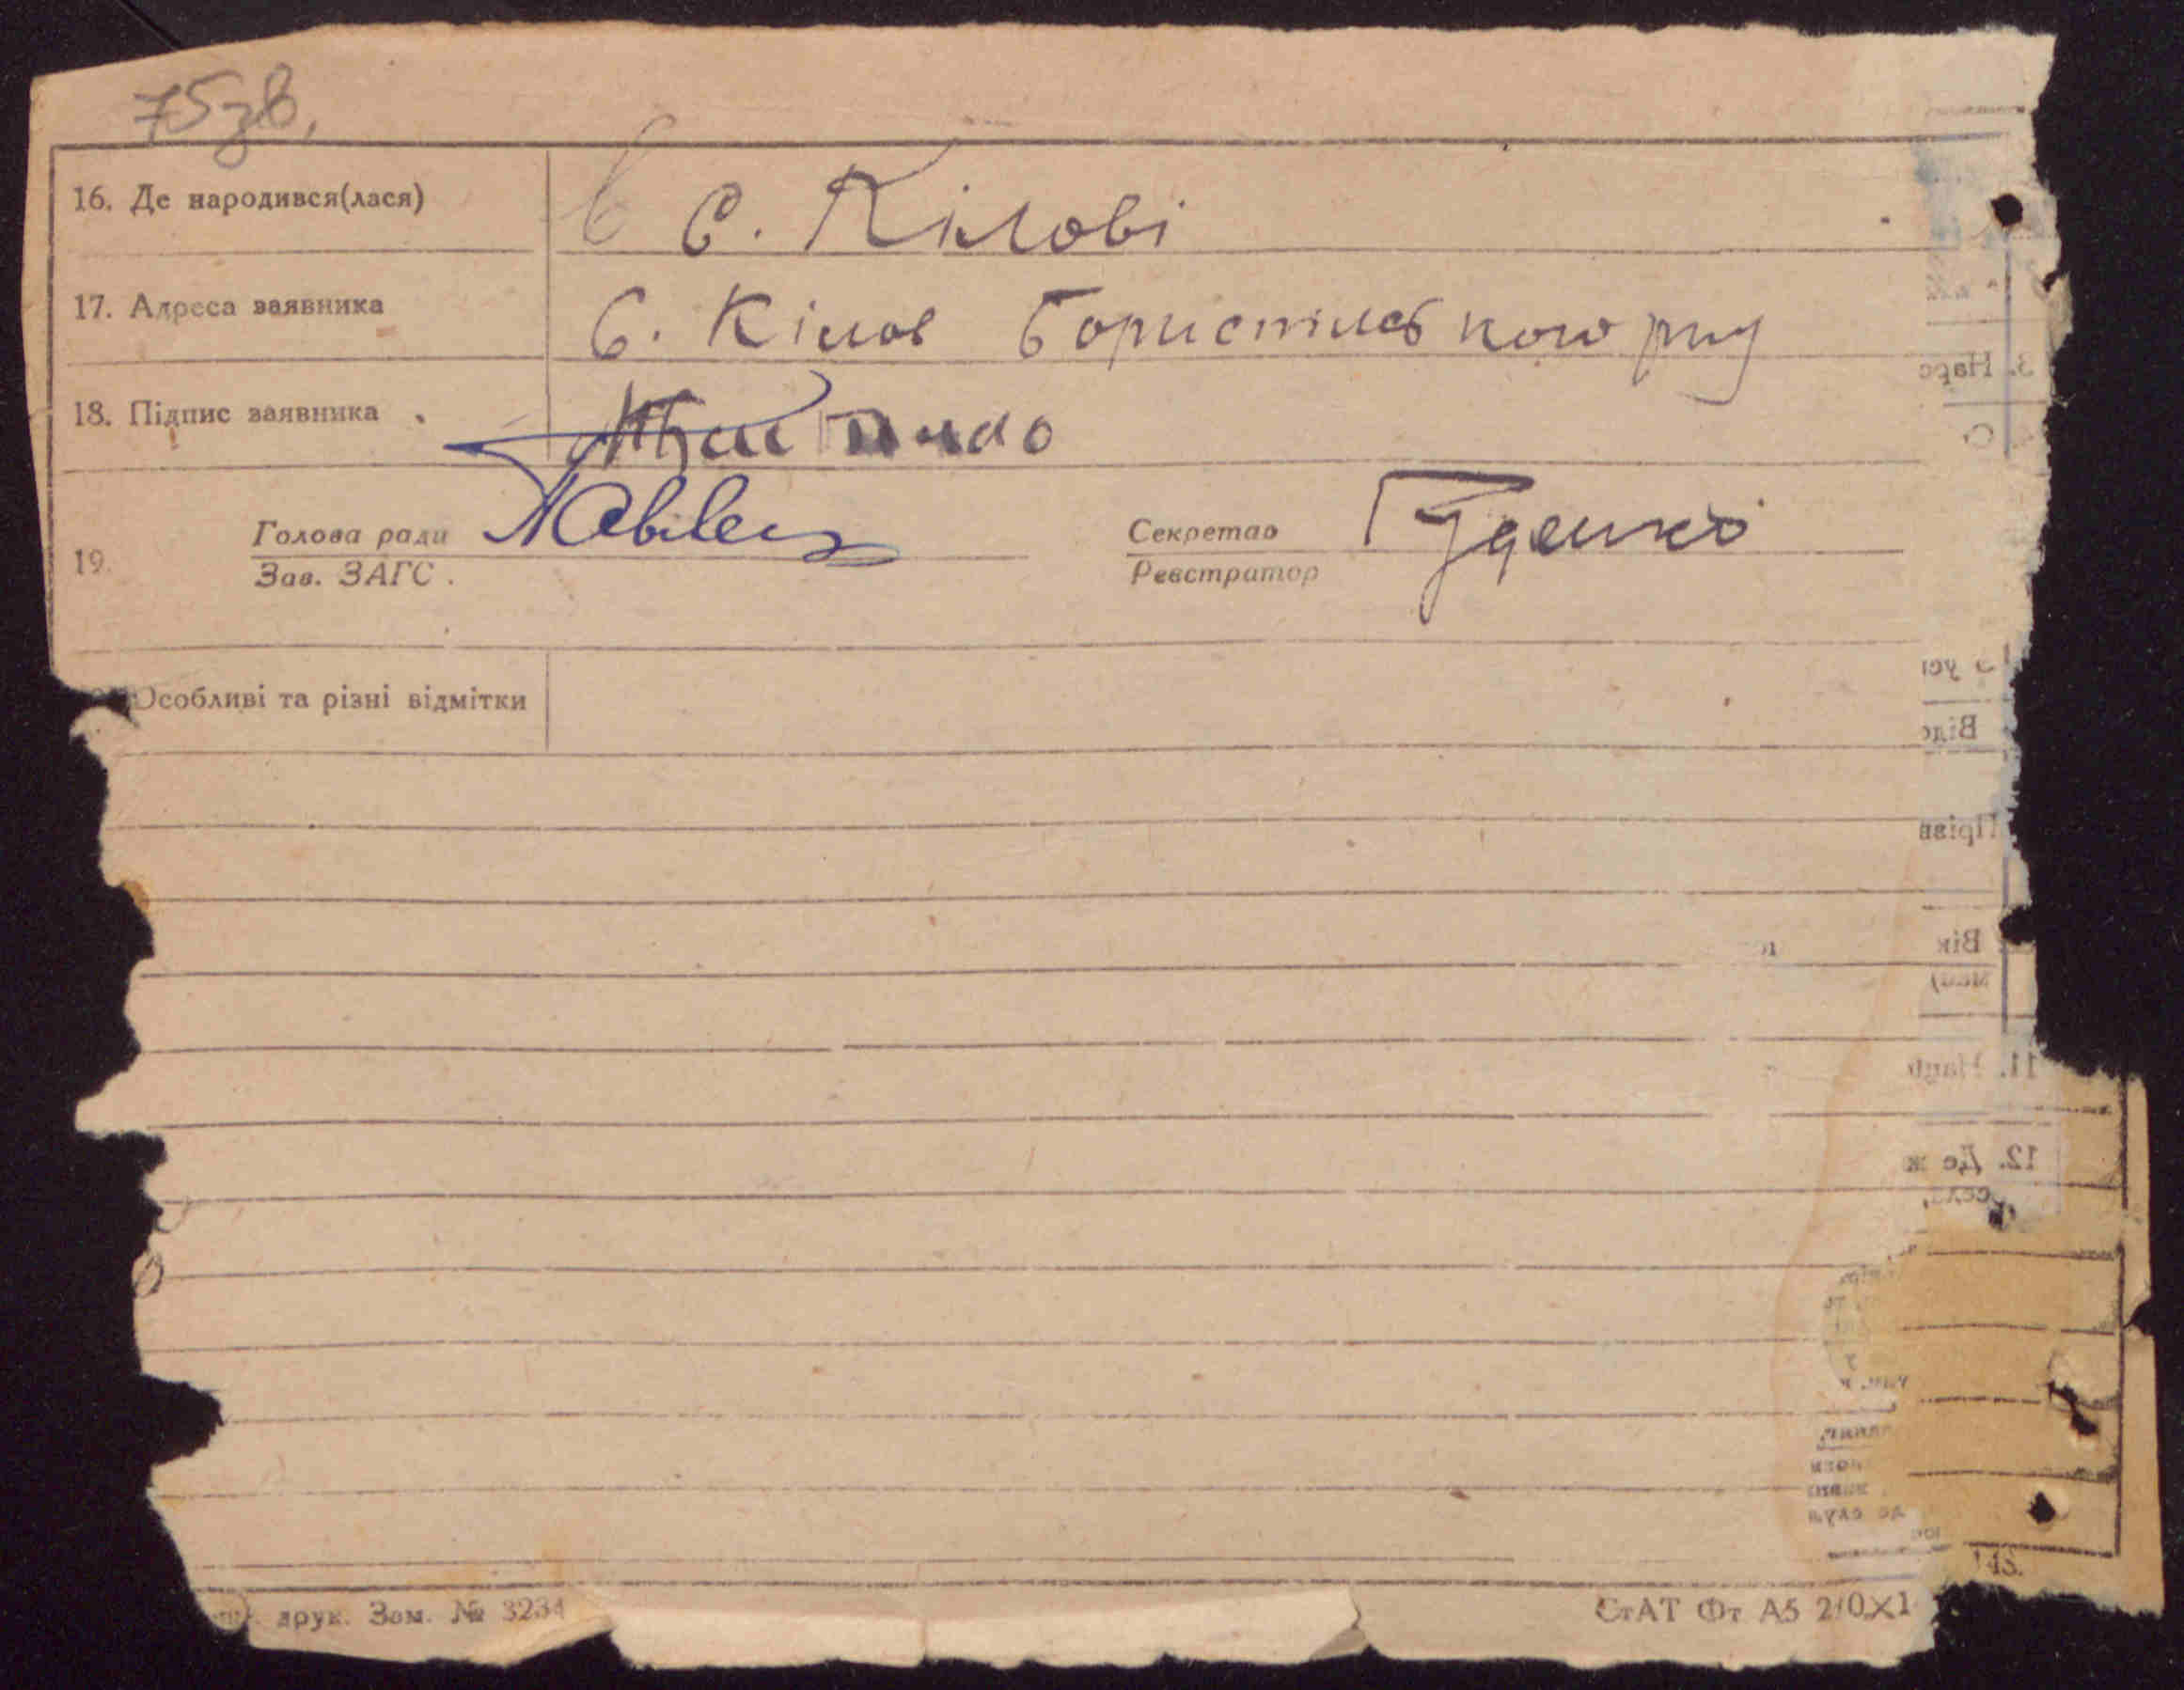 75зв.
16. Де народився(лася) в с. Кілові
17. Адреса заявника с. Кілов Бориспільського р-ну
18. Підпис заявника
19. Голова ради Секретар Гуденко
Зав. ЗАГС. Реєстратор
Особливі та різні відмітки
3. Наро
Відо
Прізв
Вік
11. Наці
12. Де ж
села,
де служ
друк. Зам. № 3234 СтАТ Фт А5 210×1